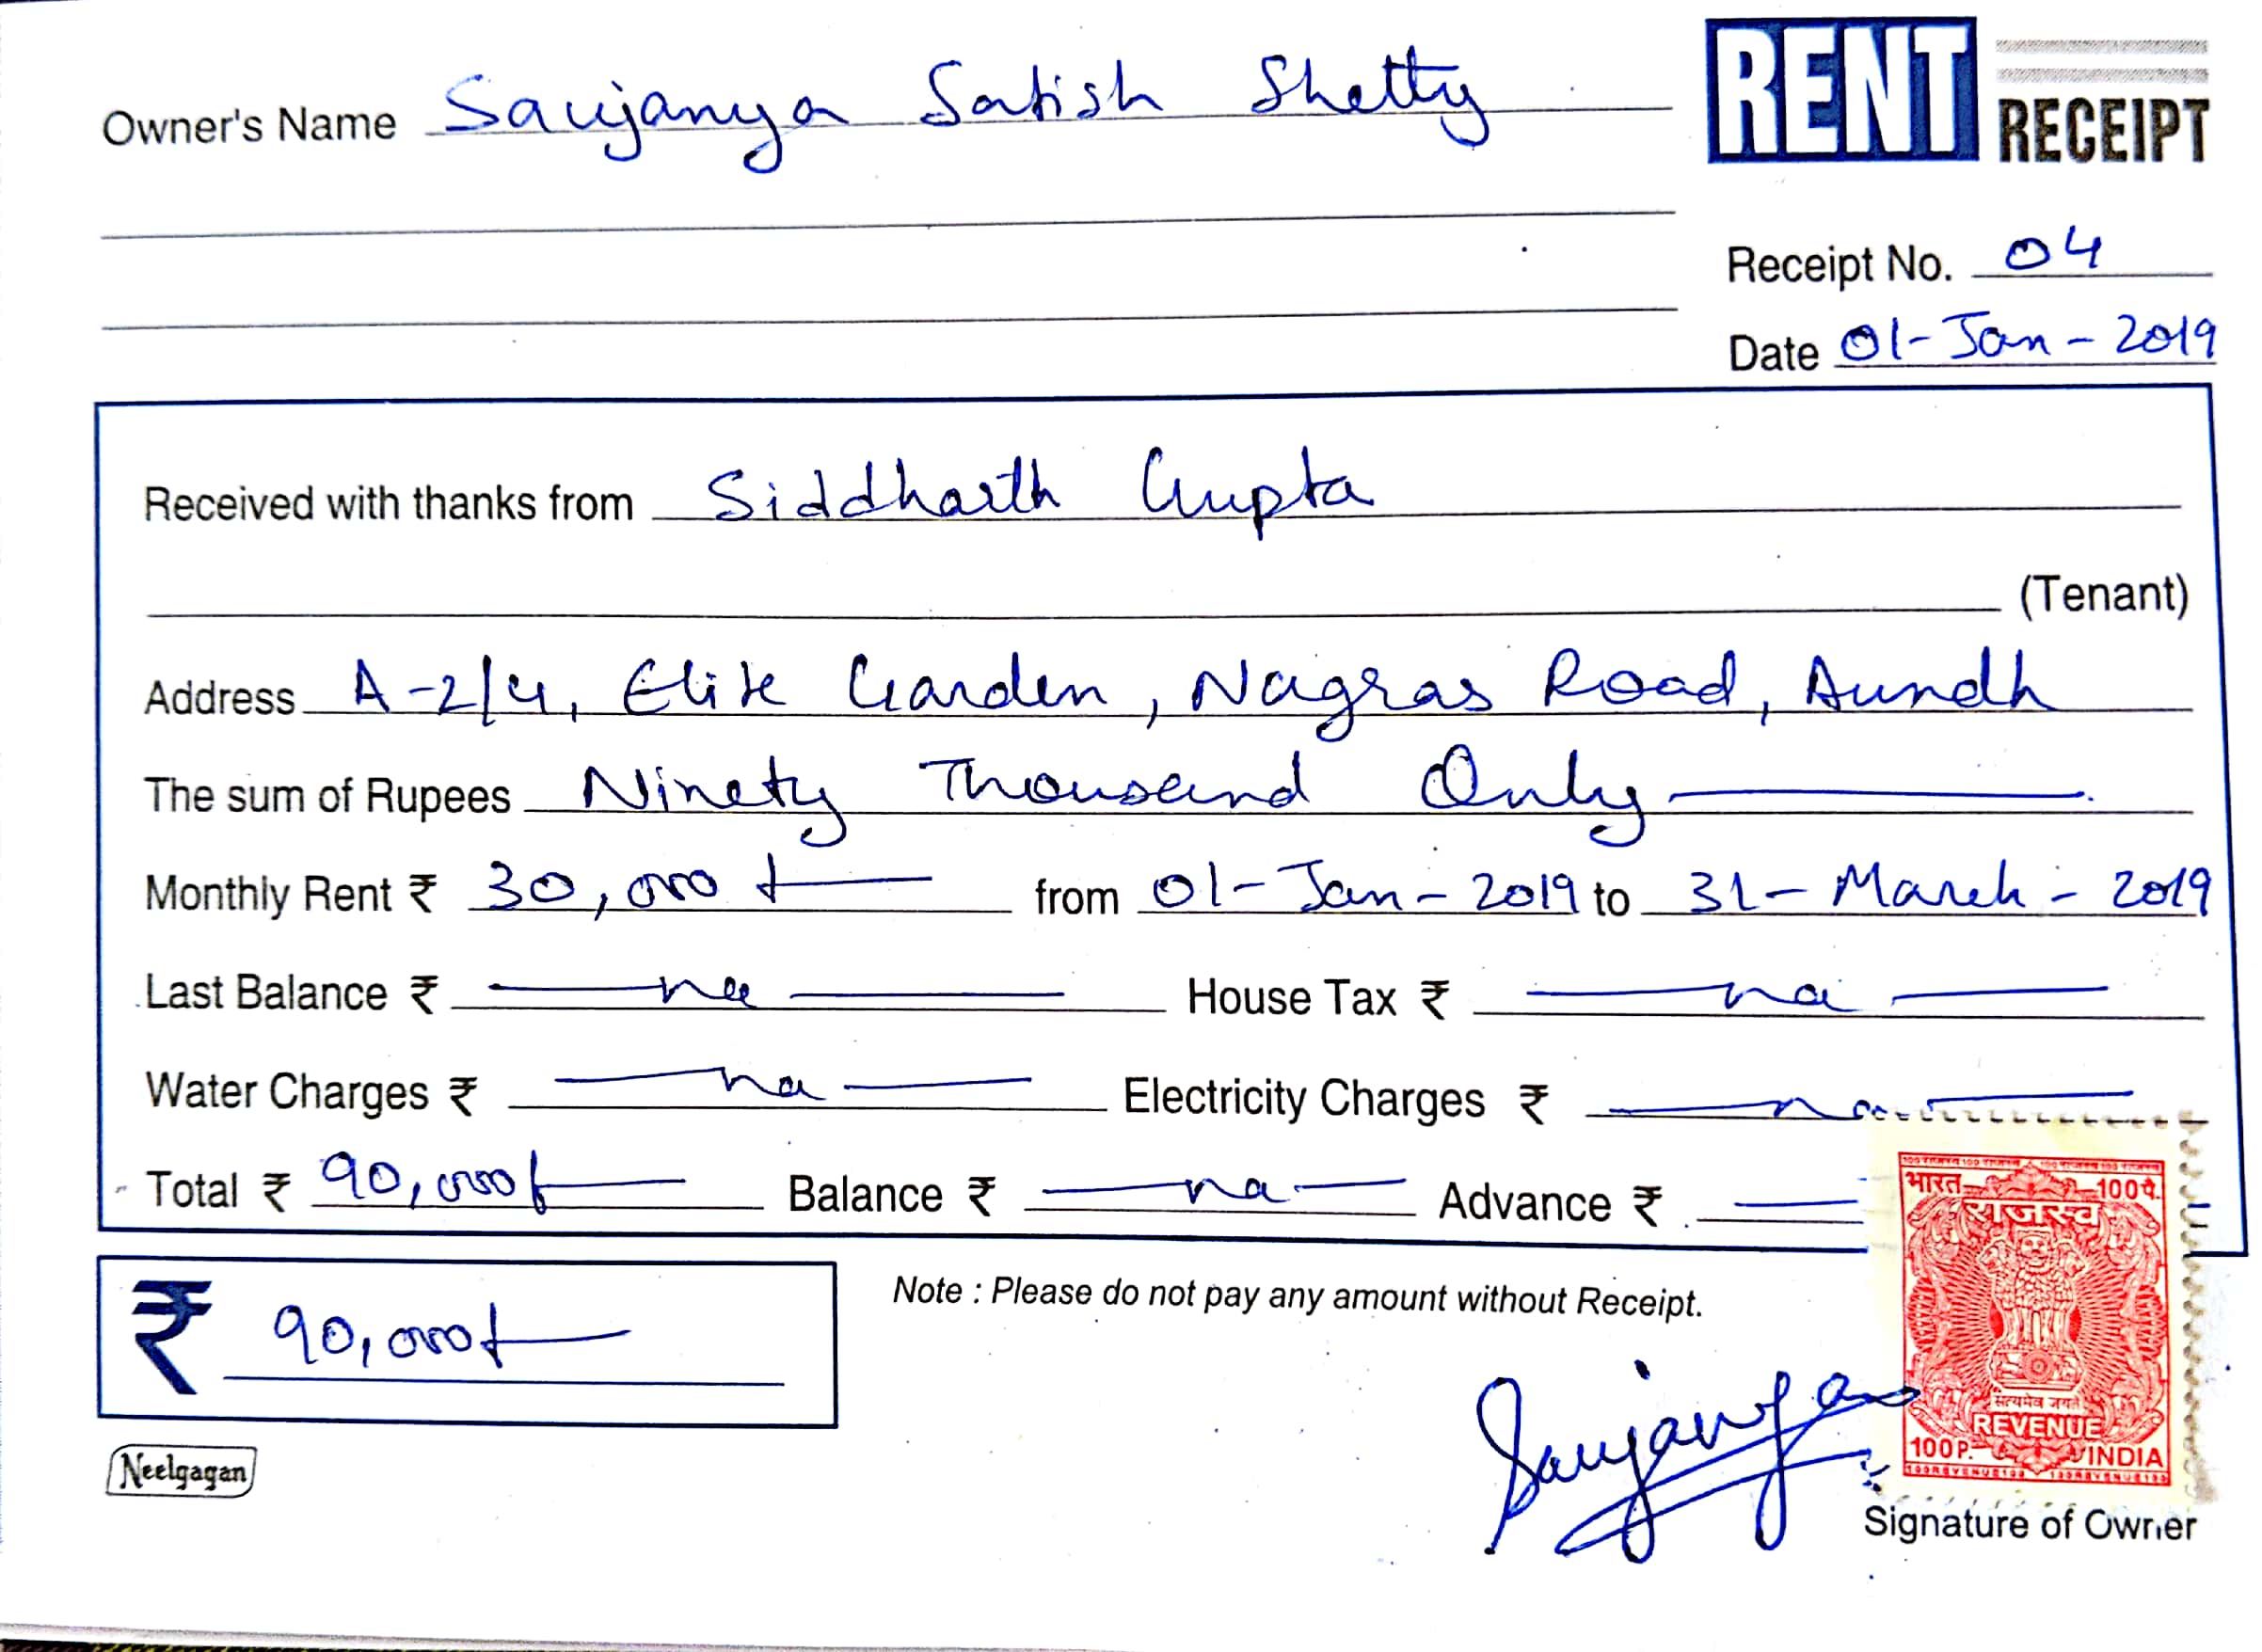 Owner's Name Saujanya Satish Shetty
RENT RECEIPT
Receipt No. 04
Date 01-Jan-2019
Received with thanks from Siddharth Gupta
(Tenant)
Address A-2/4, Elite Garden, Nagras Road, Aundh
The sum of Rupees Ninety Thousand Only
Monthly Rent ₹ 30,000/- from 01-Jan-2019 to 31-March-2019
Last Balance ₹ na House Tax ₹ na
Water Charges ₹ na Electricity Charges ₹ na
Total ₹ 90,000/- Balance ₹ na Advance ₹
भारत 100पै.
राजस्व
सत्यमेव जयते
REVENUE
100P. INDIA
₹ 90,000/-
Note : Please do not pay any amount without Receipt.
Saujanya
Neelgagan
Signature of Owner